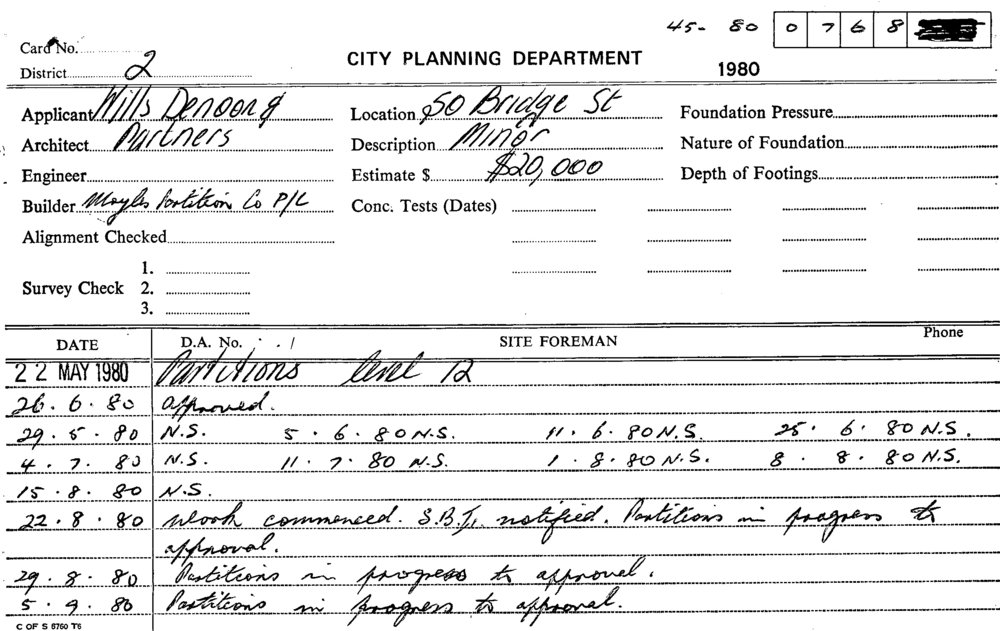 45- 80 0 7 6 8
Card No.
District 2
CITY PLANNING DEPARTMENT
1980
Applicant Wills Denoon &
Location 50 Bridge St
Foundation Pressure
Architect Partners
Description Minor
Nature of Foundation
Engineer
Estimate $ $20,000
Depth of Footings
Builder Moyles Partition Co P/L
Conc. Tests (Dates)
Alignment Checked
1.
Survey Check 2.
3.
DATE D.A. No. SITE FOREMAN Phone
22 MAY 1980 Partitions level 12
26.6.80 approved.
29.5.80 N.S. 5.6.80 N.S. 11.6.80 N.S. 25.6.80 N.S.
4.7.80 N.S. 11.7.80 N.S. 1.8.80 N.S. 8.8.80 N.S.
15.8.80 N.S.
22.8.80 Work commenced. notified. Partitions in progress to
approval.
29.8.80 Partitions in progress to approval.
5.9.80 Partitions in progress to approval.
C OF S 6760 T6